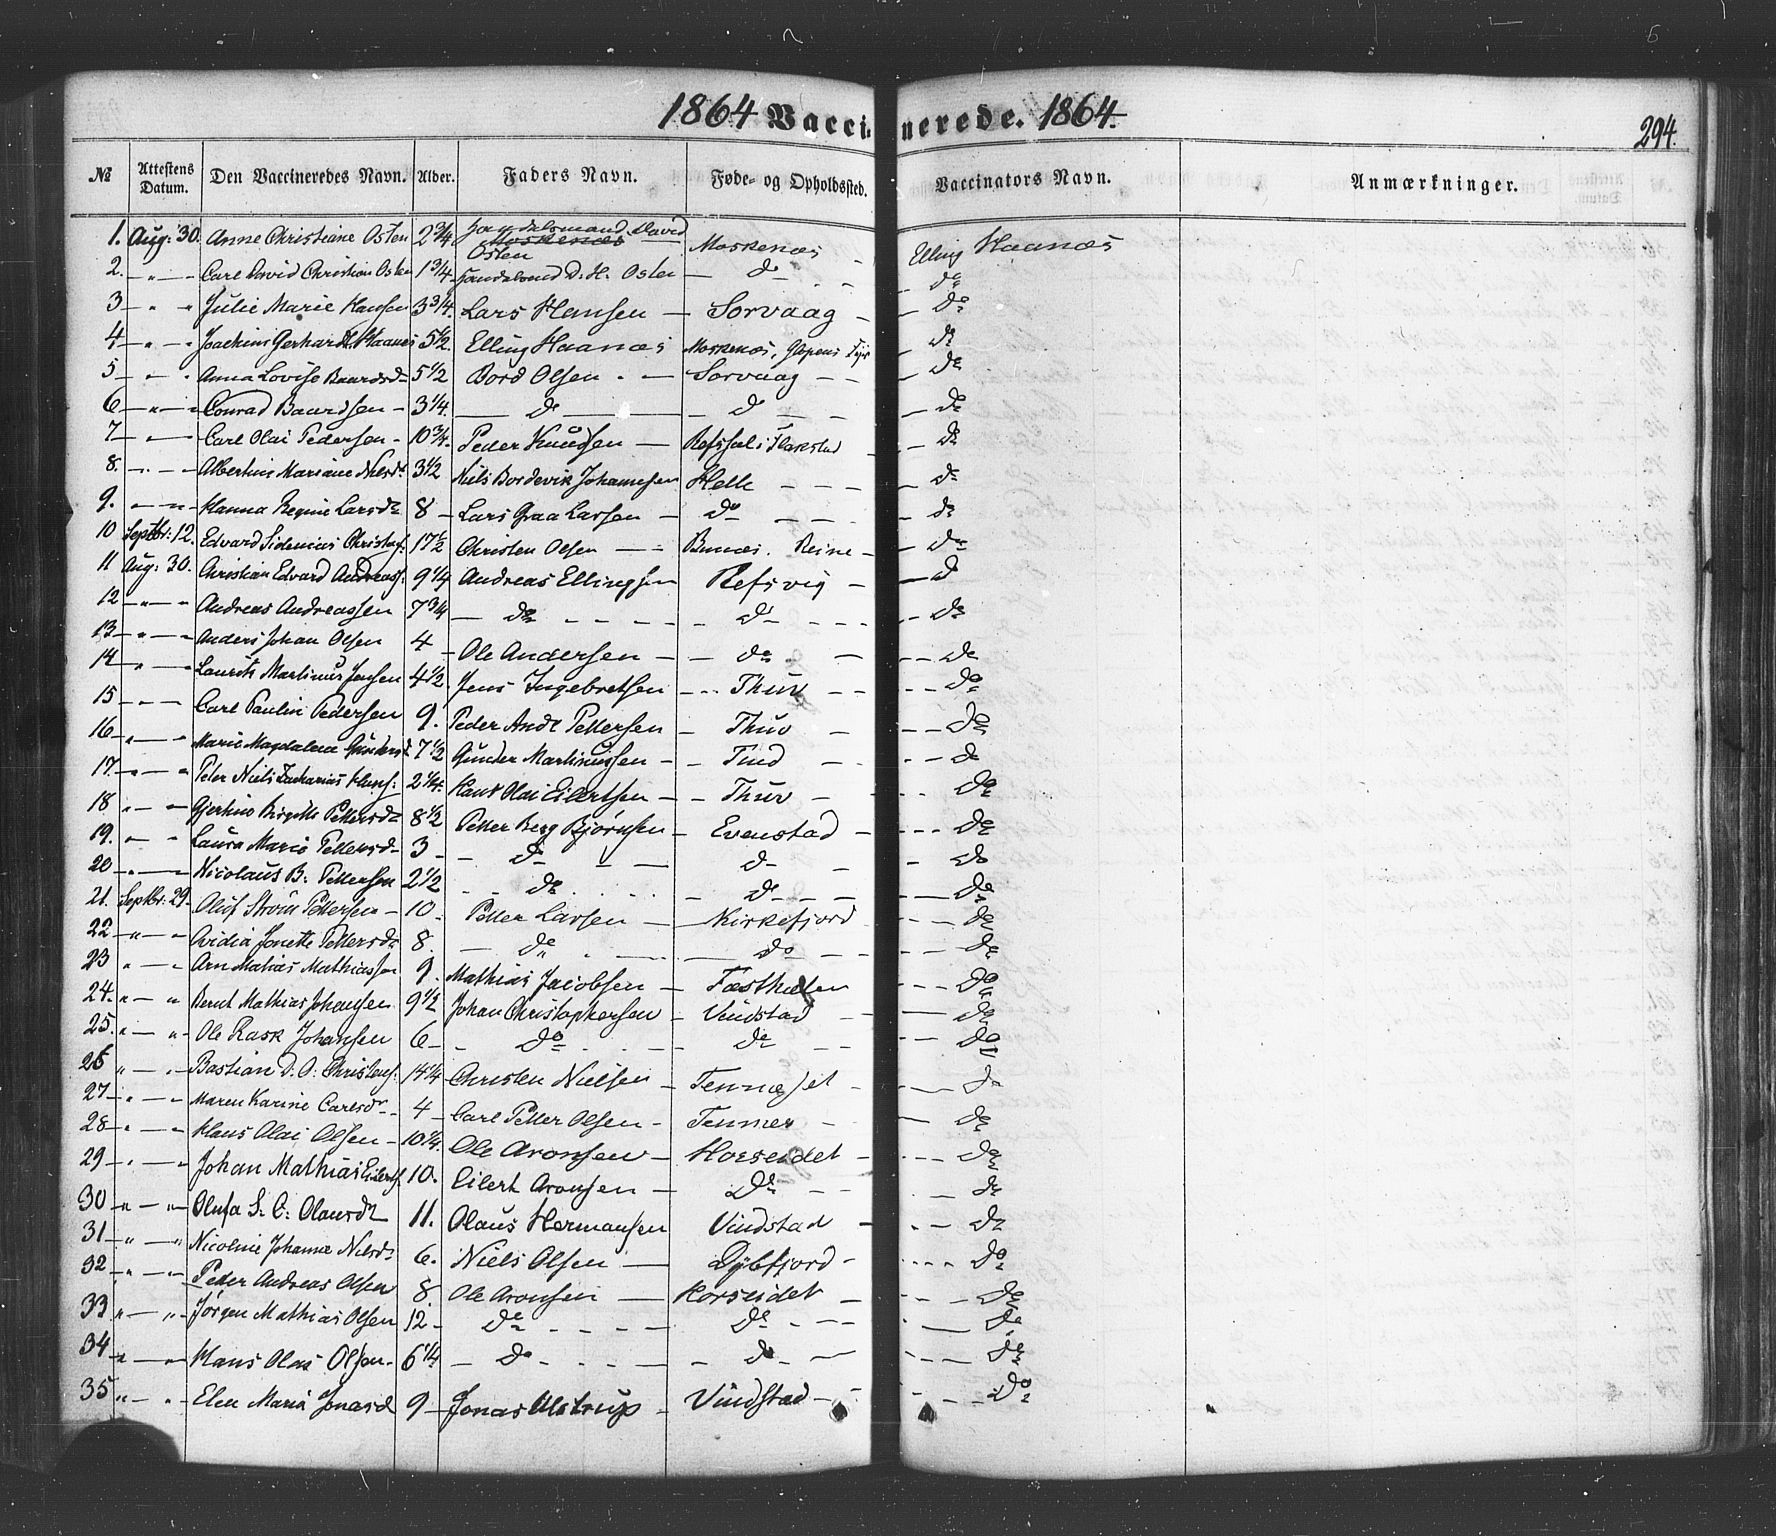 1864 Vaccinerede. 1864.
294.
№ Attestens Datum. Den Vaccineredes Navn. Alder. Faders Navn. Føde- og Opholdssted. Vaccinators Navn. Anmærkninger.
1. Aug: 30. Anne Christiane Osten 2 3/4 David Moskenæs Osten Moskenæs Elling Haanæs
2. " Carl David Christian Osten 1 3/4 D. H. Osten do do
3 " Julie Marie Hansen 3 3/4 Lars Hansen Sorvaag do
4 " Joachim Gerhard Haanæs 5 1/2 Elling Haanæs Moskenæs, Glapens Fyr do
5 " Anna Lovise Baardsd 5 1/2 Bord Olsen Sorvaag do
6 " Conrad Baardsen 3 1/4 do do do
7 " Carl Olai Pedersen 10 3/4 Peder Knudsen Flakstad do
8. " Albertine Mariane Nilsd 3 1/2 Niels Bordevik Johannesen Helle do
9. " Hanna Regine Larsd 8 Lars Graa Larsen do do
10 Septbr: 12. Edvard Sidenius Christens: 17 1/2 Christen Olsen Bunæs. Reine do
11 Aug: 30. Christian Edvard Andreas: 9 1/4 Andreas Ellingsen Refsvig do
12 " Andreas Andreassen 7 3/4 do do do
13 " Anders Johan Olsen 4 Ole Andersen do do
14 " Laurits Martinus Jensen 4 1/2 Jens Ingebretsen Thuv do
15 " Carl Paulin Pedersen 9. Peder Andr Pettersen Thuv do
16 " Marie Magdalena Gundersd 7 1/2 Gunder Martinussen Tind do
17. " Peter Niels Zacharias Hans: 2 1/4. Hans Olai Eilertsen Thuv do
18 " Gjertine Birgitte Pettersd 8 1/2 Petter Berg Bjørnsen Evenstad do
19. " Laura Marie Pettersd 3 do do do
20 " Nicolaus B: Pettersen 2 1/2 do do do
21. Septbr: 29. Oluf Strøm Pettersen 10. Petter Larsen Kirkefjord do
22 " Ovidia Jonette Pettersd 8. do do do
23 " Arn Matias Mathiassen 9. Mathias Jacobsen Fæsthælen do
24. " Bernt Mathias Johansen 9 1/2 Johan Christophersen Vindstad do
25. " Ole Rask Johansen 6 do do do
26 " Bastian D. O: Christens: 14 1/4 Christen Nielsen Tennæset do
27 " Maren Karine Carlsdr 4 Carl Petter Olsen Tennes do
28 " Hans Olai Olsen 10 1/4. Ole Aronsen Horseidet do
29 " Johan Mathias Eilerts. 10. Eilert Aronsen do do
30 " Olufa S. C: Olausd 11. Olaus Hermansen Vindstad do
31 " Nicoline Johanna Nilsd 6. Niels Olsen Dybfjord do
32 " Petter Andreas Olsen 8. Ole Aronsen Horseidet do
33 " Jørgen Mathias Olsen 12. do do do
34 " Hans Olai Olsen 6 1/4 do do do
35 " Elen Maria Jonasd 9 Jonas Alstrup Vindstad do